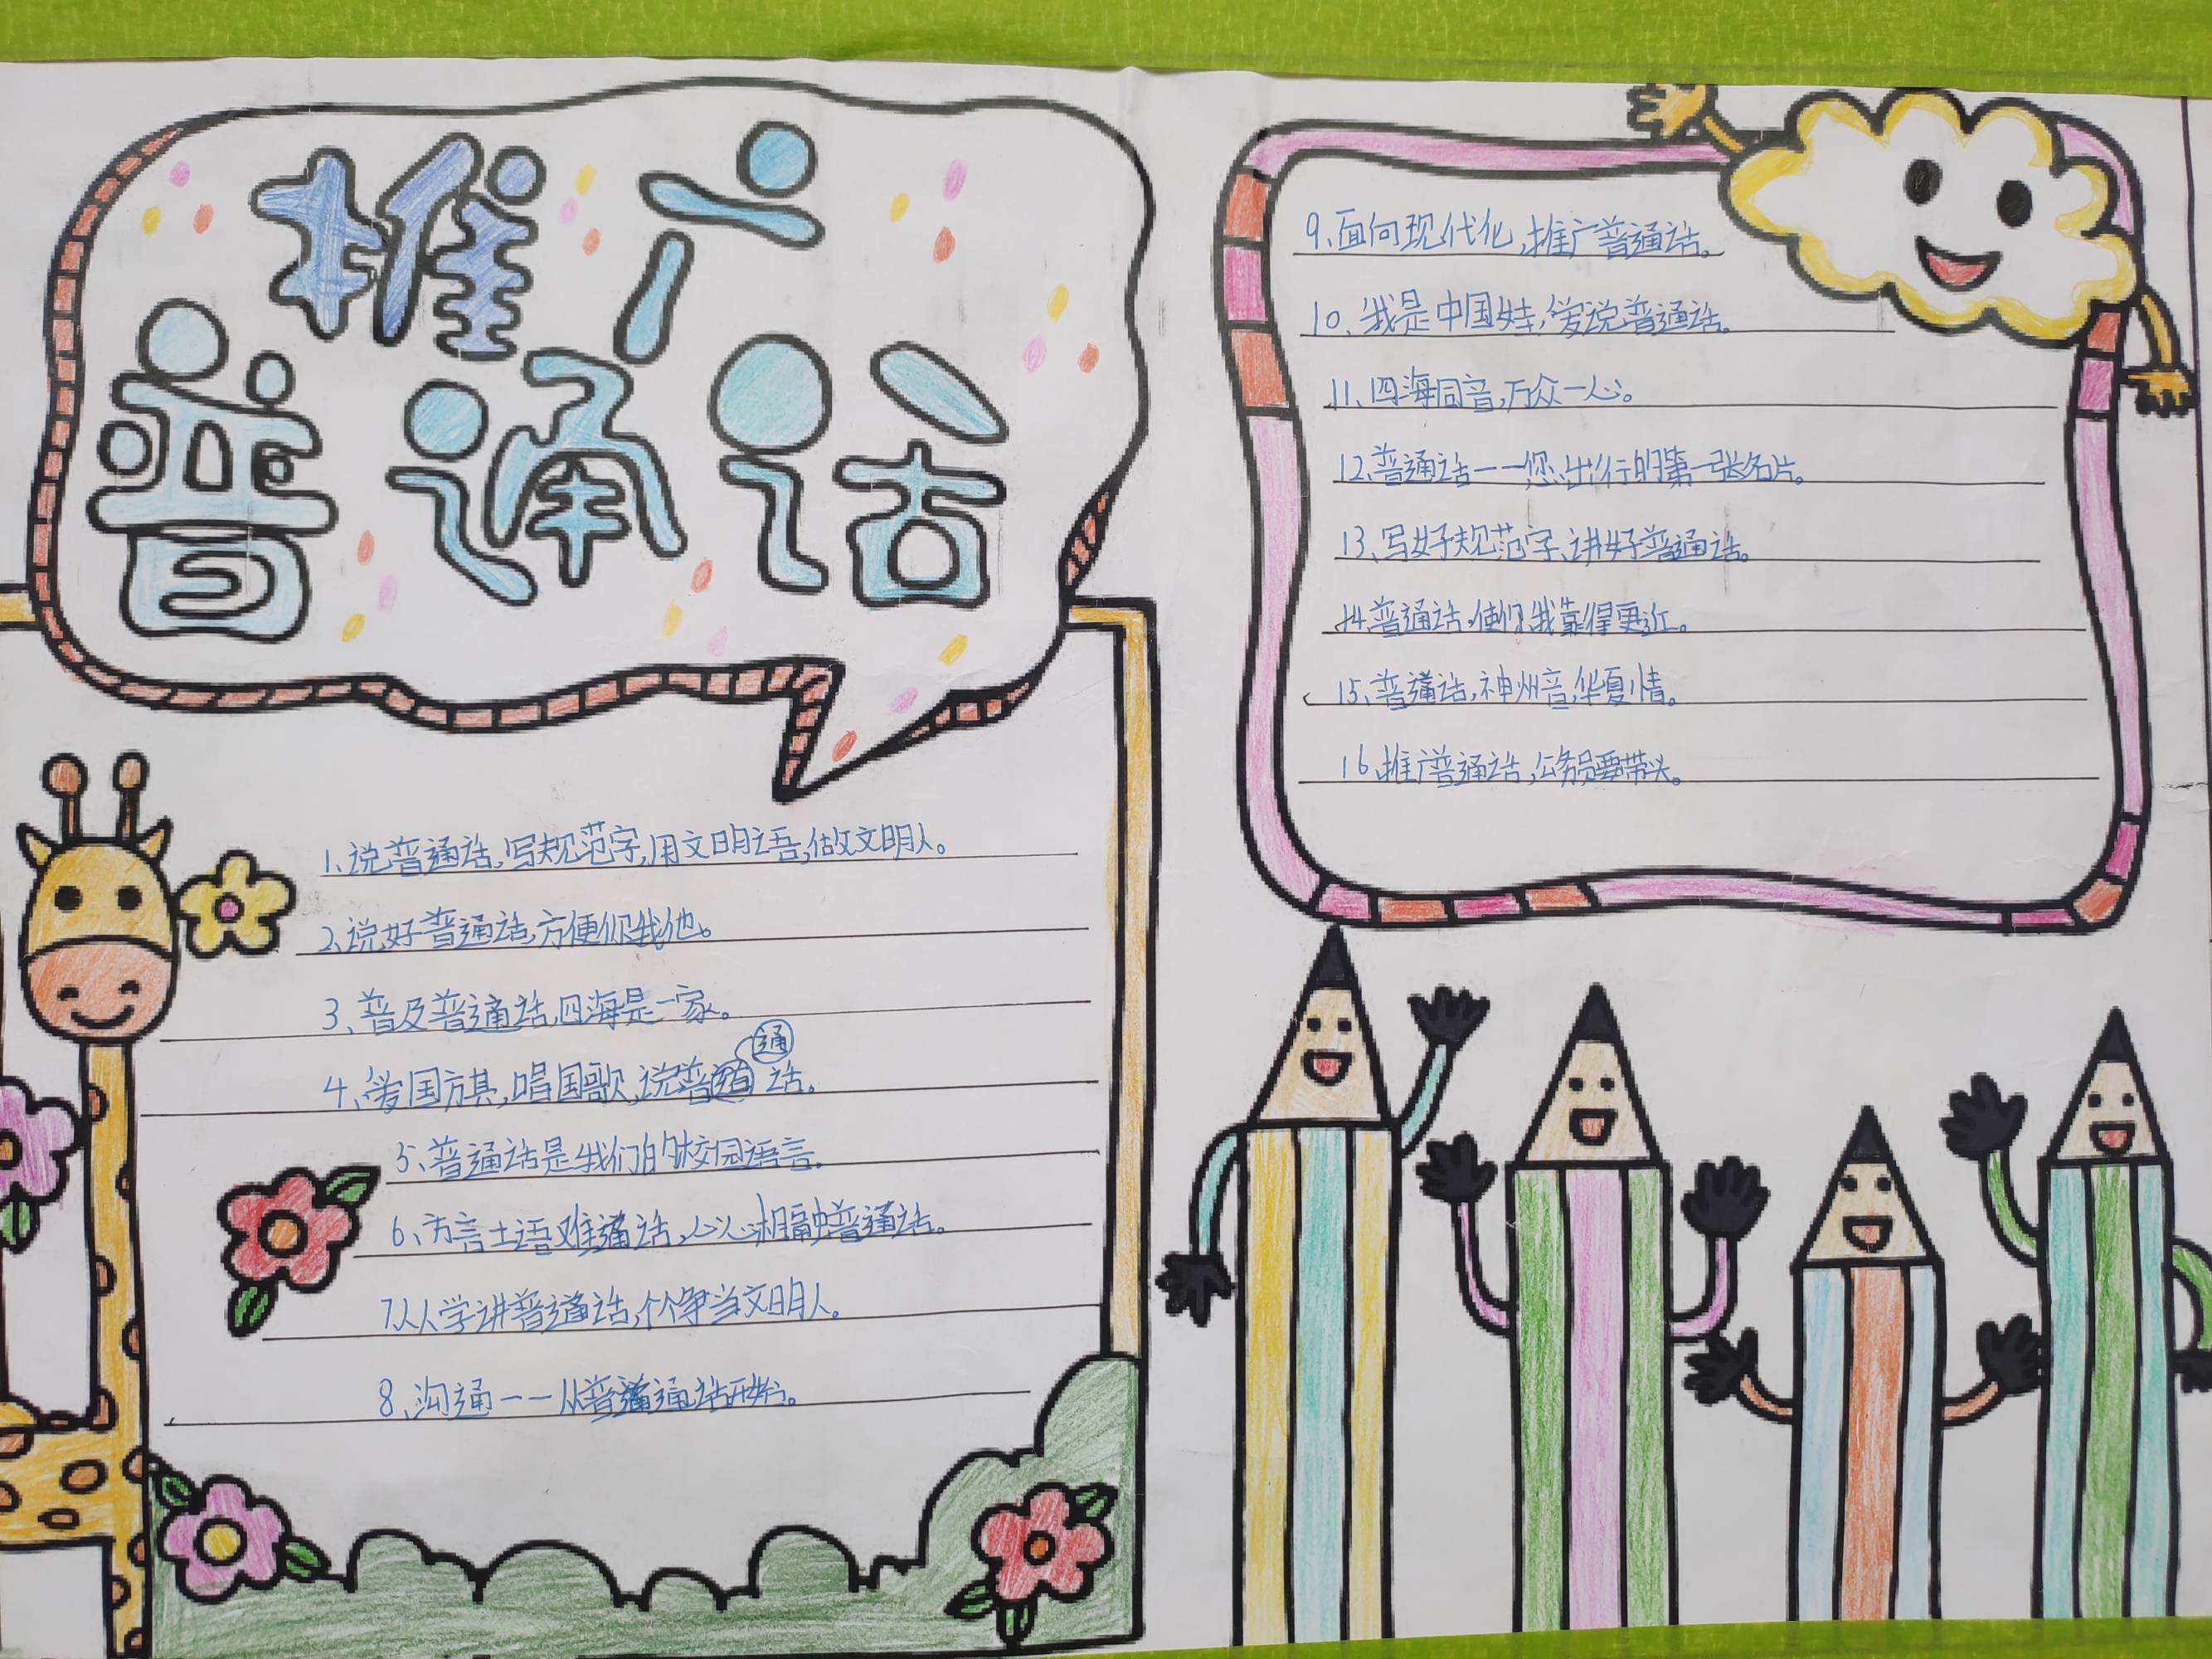 推广
普通话
1、说普通话,写规范字,用文明语,做文明人。
2、说好普通话,方便你我他。
3、普及普通话,四海是一家。
4、爱国旗,唱国歌,说普通话。
5、普通话是我们的校园语言.
6、方言土语难通话,心心相融普通话。
7、人人学讲普通话,个个争当文明人。
8、沟通——从普通话开始。
9、面向现代化,推广普通话。
10、我是中国娃,爱说普通话。
11、四海同音,万众一心。
12、普通话——您出行的第一张名片。
13、写好规范字、讲好普通话。
14、普通话,使你我靠得更近。
15、普通话,神州音,华夏情。
16、推广普通话,公务员要带头。